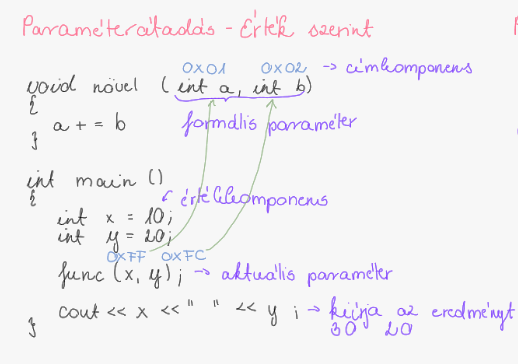 Paraméterátadás - Érték szerint
0x01 0x02 → címkomponens
void növel (int a, int b)
{
a += b formális paraméter
}
int main ()
{ értékkomponens
int x = 10;
int y = 20;
0xFF 0xFC
func (x, y); → aktuális paraméter
cout << x << " " << y ; → kiírja az eredményt
} 30 20